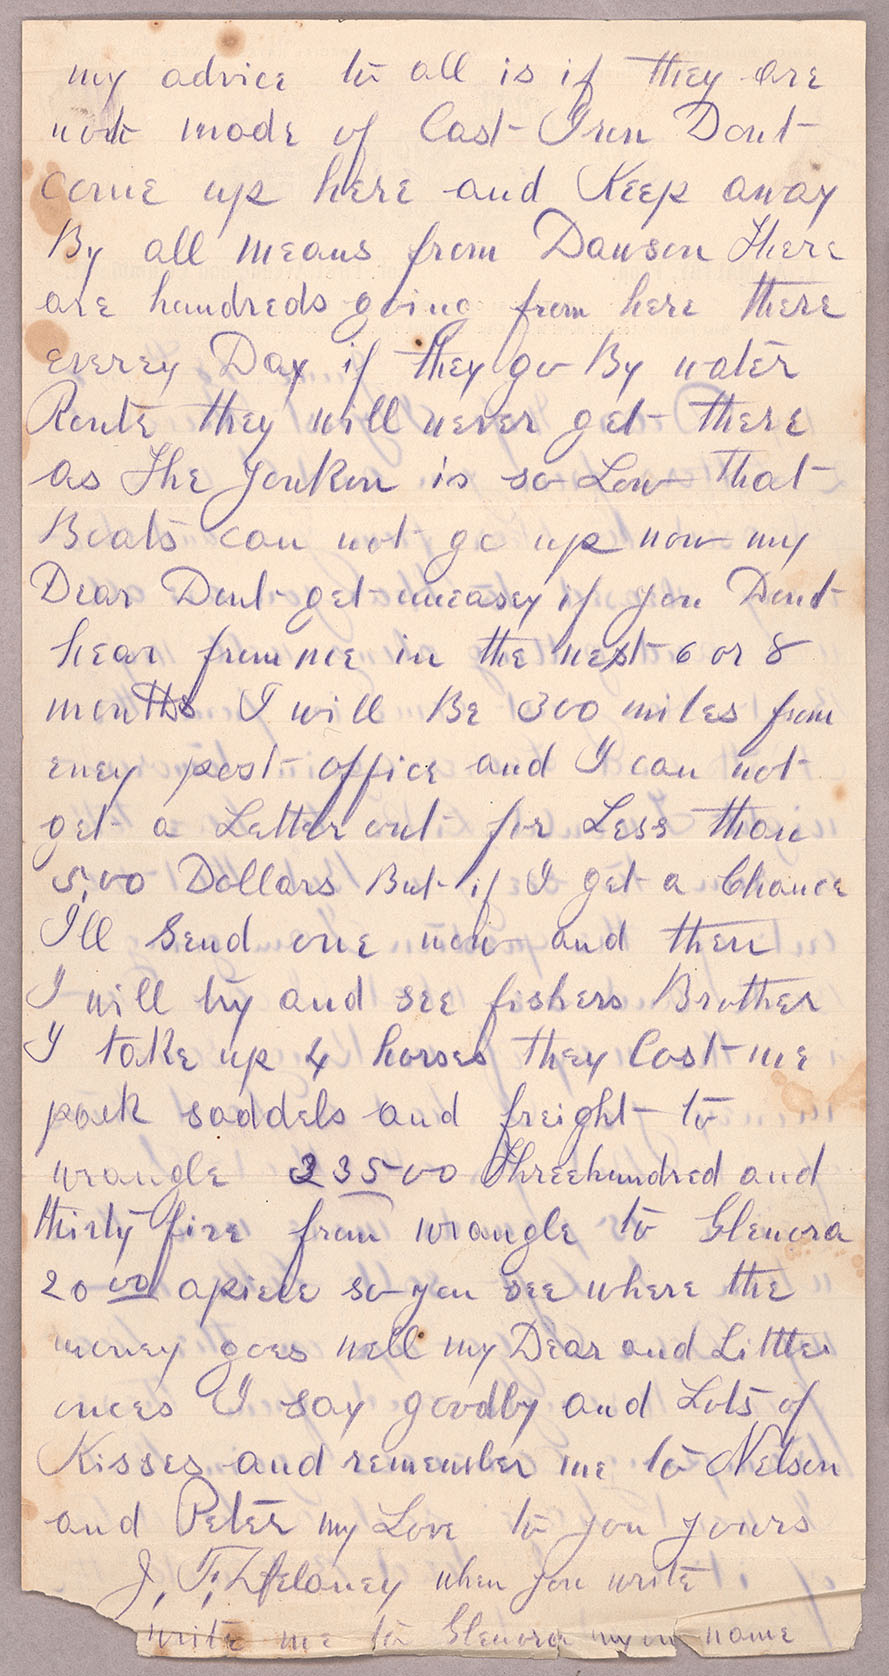 my advice to all is if they are
not made of Cast Iron Dont
come up here and Keep away
By all means from Dawson There
are hundreds going from here there
everey Day if they go By water
Route they will never get there
as The Youkon is so Low That
Boats can not go up now my
Dear Dont get uneasey if you Dont
hear from me in the next 6 or 8
months I will Be 300 miles from
eney post office and I can not
get a Letter out for Less than
5,00 Dollars But if I get a Chance
I'll Send one now and then
I will try and see fishers Brother
I take up 4 horses they Cost me
pack saddels and freight to
wrangle 33500 Threehundred and
thirty five from wrangle to Glenora
20 00 apiece so you see where the
money goes well my Dear and Little
onces I say goodby and Lots of
Kisses and remember me to Nelson
and Peter my Love to you yours
J, F, Delaney when you write
write me to Glenora my name